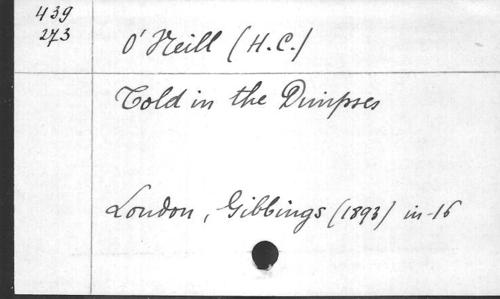 439
273
O'Neill (H.C.)
Told in the Dimpses
London, Gibbings (1893) in-16